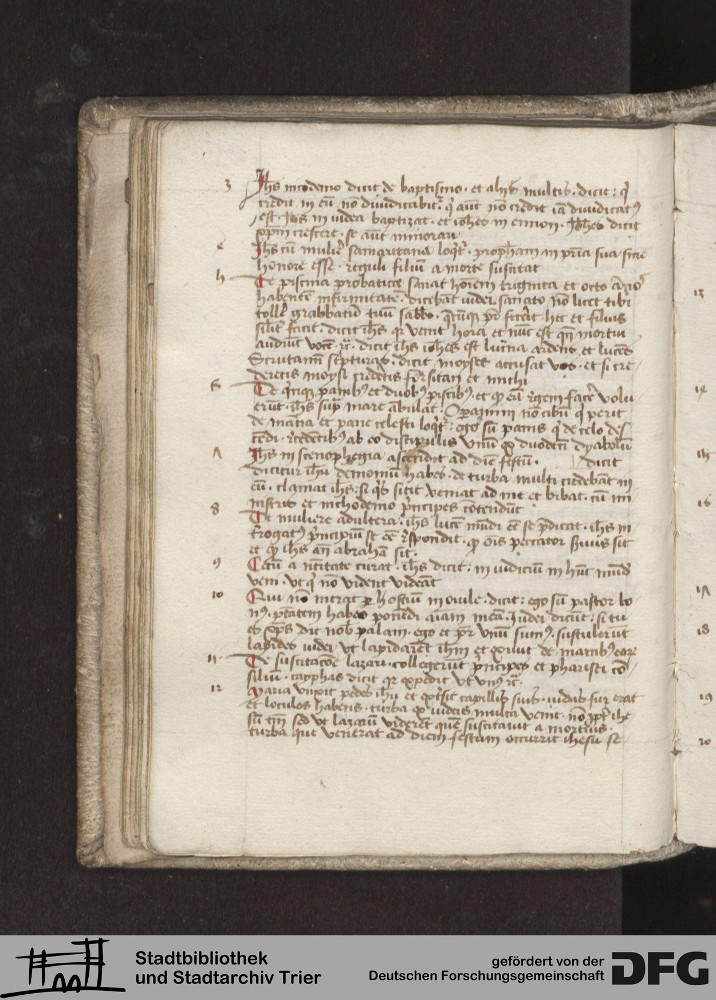 3 Jhs nicodemo dicit de baptismo · et alijs multis · dicit : q
credit in eu no diiudicabit · q aut no credit ia diiudicatus
est · Jhs in iudea baptizat · et iohes in ennon · Johes dicit
xpm crescere · se aut minorari
4 Jhs cu muliere samaritana loqt · prophetam in pria sua sine
honore esse · reguli filiu a morte suscitat
5 De piscina probatica sanat hoiem triginta et octo annos
habente infirmitate · dicebat iudei sanato no licet tibi
tolle grabbatu tuu sabbo · qcuq pr fecat hec et filius
silit facit · dicit ihs qr venit hora et nuc est qn mortui
audiut voce · dicit ihs iohes est lucrna ardens et lucens
Scrutamini scripturas · dicit moyses accusat vos · et si cre
deretis moysi crederetis et michi
6 De qnqz panibus et duobus piscibus · et q ea rgem facere volu
erut · ihs sup mare abulat · Opamini no cibu q perit
de mana et pane celesti loqt · ego su panis q de celo des
cedi · credetibus ab eo discipulis vnu ex duodeci dyabolu
7 Jhs in scenophegia ascendit ad die festu · dicit
dicitur ihu demoniu habes · de turba multi credebat in
eu · clamat ihs · si qs sitit veniat ad me et bibat · cu mi
nistris et nichodemo principes cotendut
8 De muliere adultera · ihs luce mudi se pdicat · ihs in
terrogatus principiu se ee rspondit · q ois peccator suus sit
et q ihs an abraha sit ·
9 Cecu a natiuitate curat · ihs dicit : in iudiciu in hunc mud
veni · vt q no vident videat
10 Qui no intrat per hostiu in ouile · dicit : ego su pastor bo
nus · ptatem habeo ponedi aiam mea · Judei dicut : si tu
es xps dic nob palam · ego et pr vnu sumus · sustulerut
lapides iudei · vt lapidaret ihm et exiuit de manibus eorum
11 De suscitacoe lazari · collegerut principes et pharisei co
siliu · cayphas dicit qr expedit vt vnus
12 Maria vnxit pedes ihu et extersit capillis suis · iudas fur erat
et loculos habens · turba ex iudeis multa venit · no pp ihm
tm sed vt lazaru videret que suscitauit a mortuis ·
turba que venerat ad diem festum occurrit ihesu se
13
14
15
16
17
18
19
20
Stadtbibliothek
und Stadtarchiv Trier
gefördert von der
Deutschen Forschungsgemeinschaft
DFG